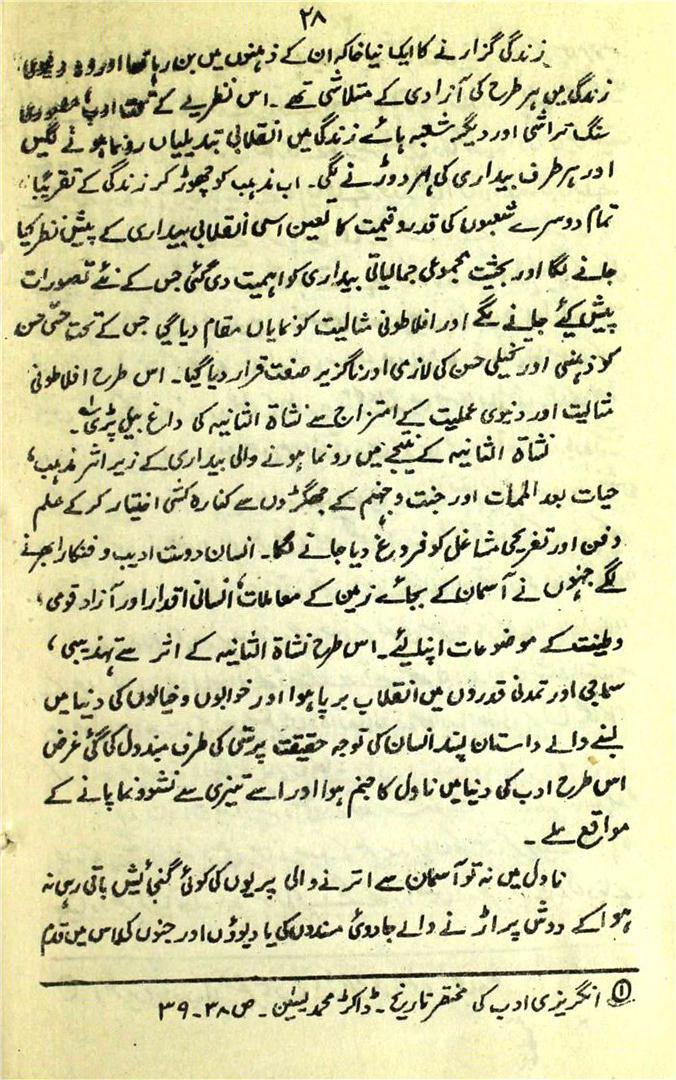 ۲۸
زندگی گزارنے کا ایک نیا خاکہ ان کے ذہنوں میں بن رہا تھا اور وہ دنیوی
زندگی میں ہر طرح کی آزادی کے متلاشی تھے ۔ اس نظریے کے تحت ادب، مصوری
سنگ تراشی اور دیگر شعبہ ہائے زندگی میں انقلابی تبدیلیاں رونما ہونے لگیں
اور ہر طرف بیداری کی لہر دوڑنے لگی ۔ اب مذہب کو چھوڑ کر زندگی کے تقریباً
تمام دوسرے شعبوں کی قدر و قیمت کا تعین اسی انقلابی بیداری کے پیش نظر کیا
جانے لگا اور بحیثیت مجموعی جمالیاتی بیداری کو اہمیت دی گئی جس کے نئے تصورات
پیش کیئے جانے لگے اور افلاطونی مثالیت کو نمایاں مقام دیا گیا جس کے تحت حسّی حسن
کو ذہنی اور تخیلی حسن کی لازمی اور ناگزیر صنعت قرار دیا گیا ۔ اس طرح افلاطونی
مثالیت اور دنیوی عملیت کے امتزاج سے نشاۃ الثانیہ کی داغ بیل پڑی ۔
نشاۃ الثانیہ کے نتیجے میں رونما ہونے والی بیداری کے زیر اثر مذہب،
حیات بعد الممات اور جنت و جہنم کے جھگڑوں سے کنارہ کشی اختیار کر کے علم
و فن اور تفریحی مشاغل کو فروغ دیا جانے لگا ۔ انسان دوست ادیب و فنکار ابھرنے
لگے جنہوں نے آسمان کے بجائے زمین کے معاملات، انسانی اقدار اور آزاد قومی،
وطینت کے موضوعات اپنائے ۔ اس طرح نشاۃ الثانیہ کے اثر سے تہذیبی،
سماجی اور تمدنی قدروں میں انقلاب برپا ہوا اور خوابوں و خیالوں کی دنیا میں
بسنے والے داستان پسند انسان کی توجہ حقیقت پرستی کی طرف مبذول کی گئی غرض
اس طرح ادب کی دنیا میں ناول کا جنم ہوا اور اسے تیزی سے نشوونما پانے کے
مواقع ملے ۔
ناول میں نہ تو آسمان سے اترنے والی پریوں کی کوئی گنجائیش باقی رہی نہ
ہوا کے دوش پر اڑنے والے جادوئی مسندوں کی یا دیوؤں اور جنوں کی اس میں قدم
① انگریزی ادب کی مختصر تاریخ ۔ ڈاکٹر محمد یٰسین ۔ ص ۳۸ ۔ ۳۹